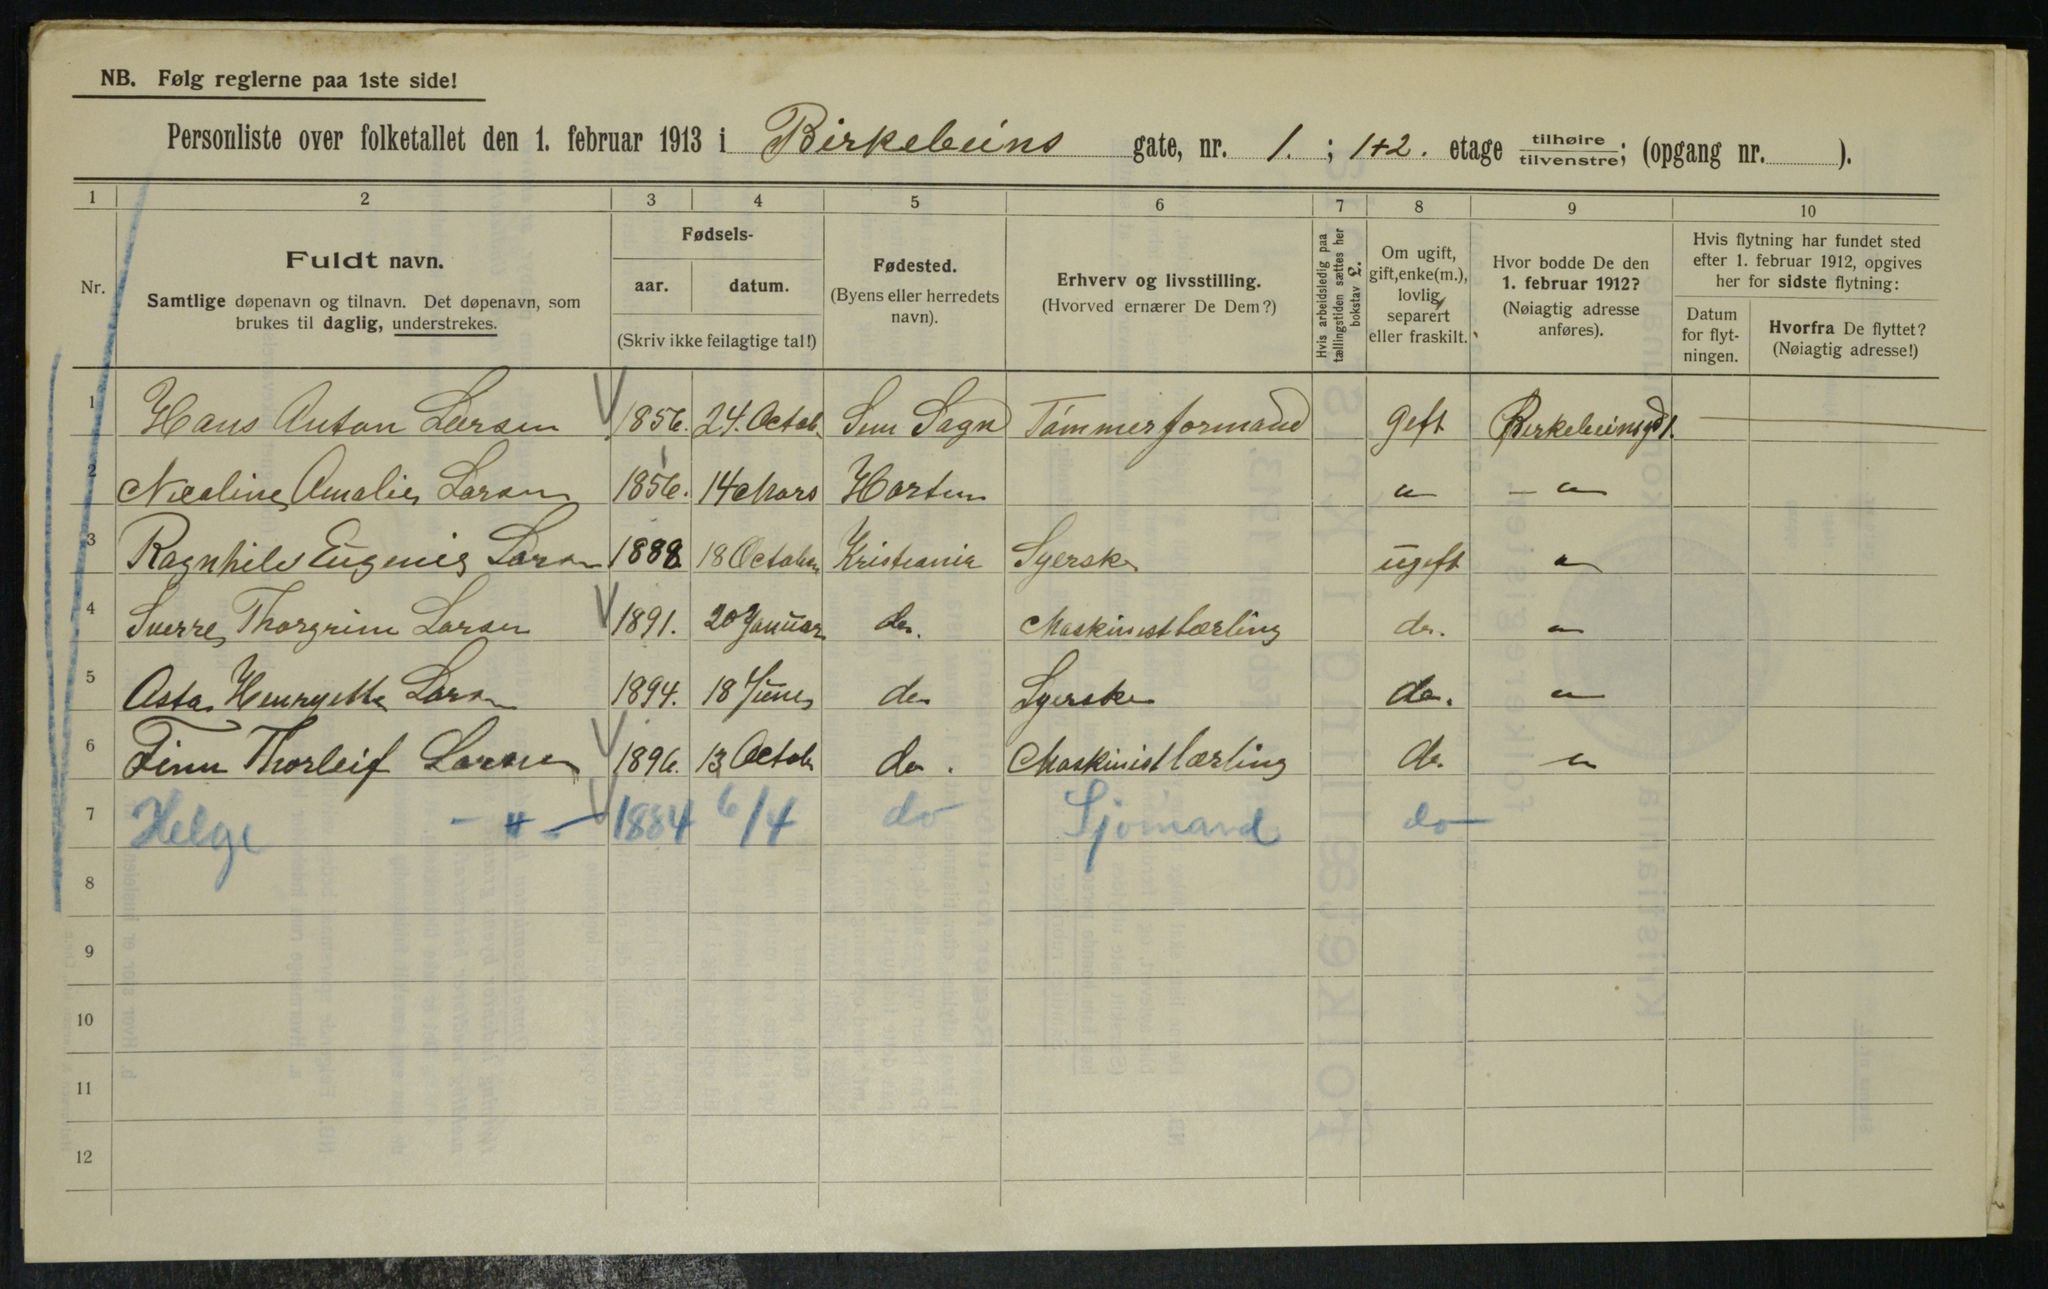 NB. Følg reglerne paa 1ste side!
Personliste over folketallet den 1. februar 1913 i Birkebeins gate, nr. 1. ; 1+2. etage tilhøire tilvenstre; (opgang nr. ).
1 2 3 4 5 6 7 8 9 10
Nr.
Fuldt navn.
Samtlige døpenavn og tilnavn. Det døpenavn, som
brukes til daglig, understrekes.
Fødsels-
aar. datum.
(Skriv ikke feilagtige tal!)
Fødested.
(Byens eller herredets
navn).
Erhverv og livsstilling.
(Hvorved ernærer De Dem?)
Hvis arbeidsledig paa
tællingstiden sættes her
bokstav L.
Om ugift,
gift, enke(m.),
lovlig
separert
eller fraskilt.
Hvor bodde De den
1. februar 1912?
(Nøiagtig adresse
anføres).
Hvis flytning har fundet sted
efter 1. februar 1912, opgives
her for sidste flytning:
Datum
for flyt-
ningen.
Hvorfra De flyttet?
(Nøiagtig adresse!)
1 Hans Anton Larsen 1856. 24. Octob. Sem Sagn Tömmerformand geft Birkebeinsgd 1.
2 Nicoline Amalie Larsen 1856. 14 Mars Horten " - "
3 Ragnhild Eugenie Larsen 1888 18 October Kristiania Syerske ugeft "
4 Sverre Thorgrim Larsen 1891. 20 Januar do. Maskinistlærling do. "
5 Asta Henryette Larsen 1894. 18 June do Syerske do. "
6 Finn Thorleif Larsen 1896. 13 Octob do. Maskinistlærling do. "
7 Helge - " - 1884 6/4 do Sjømand do
8
9
10
11
12